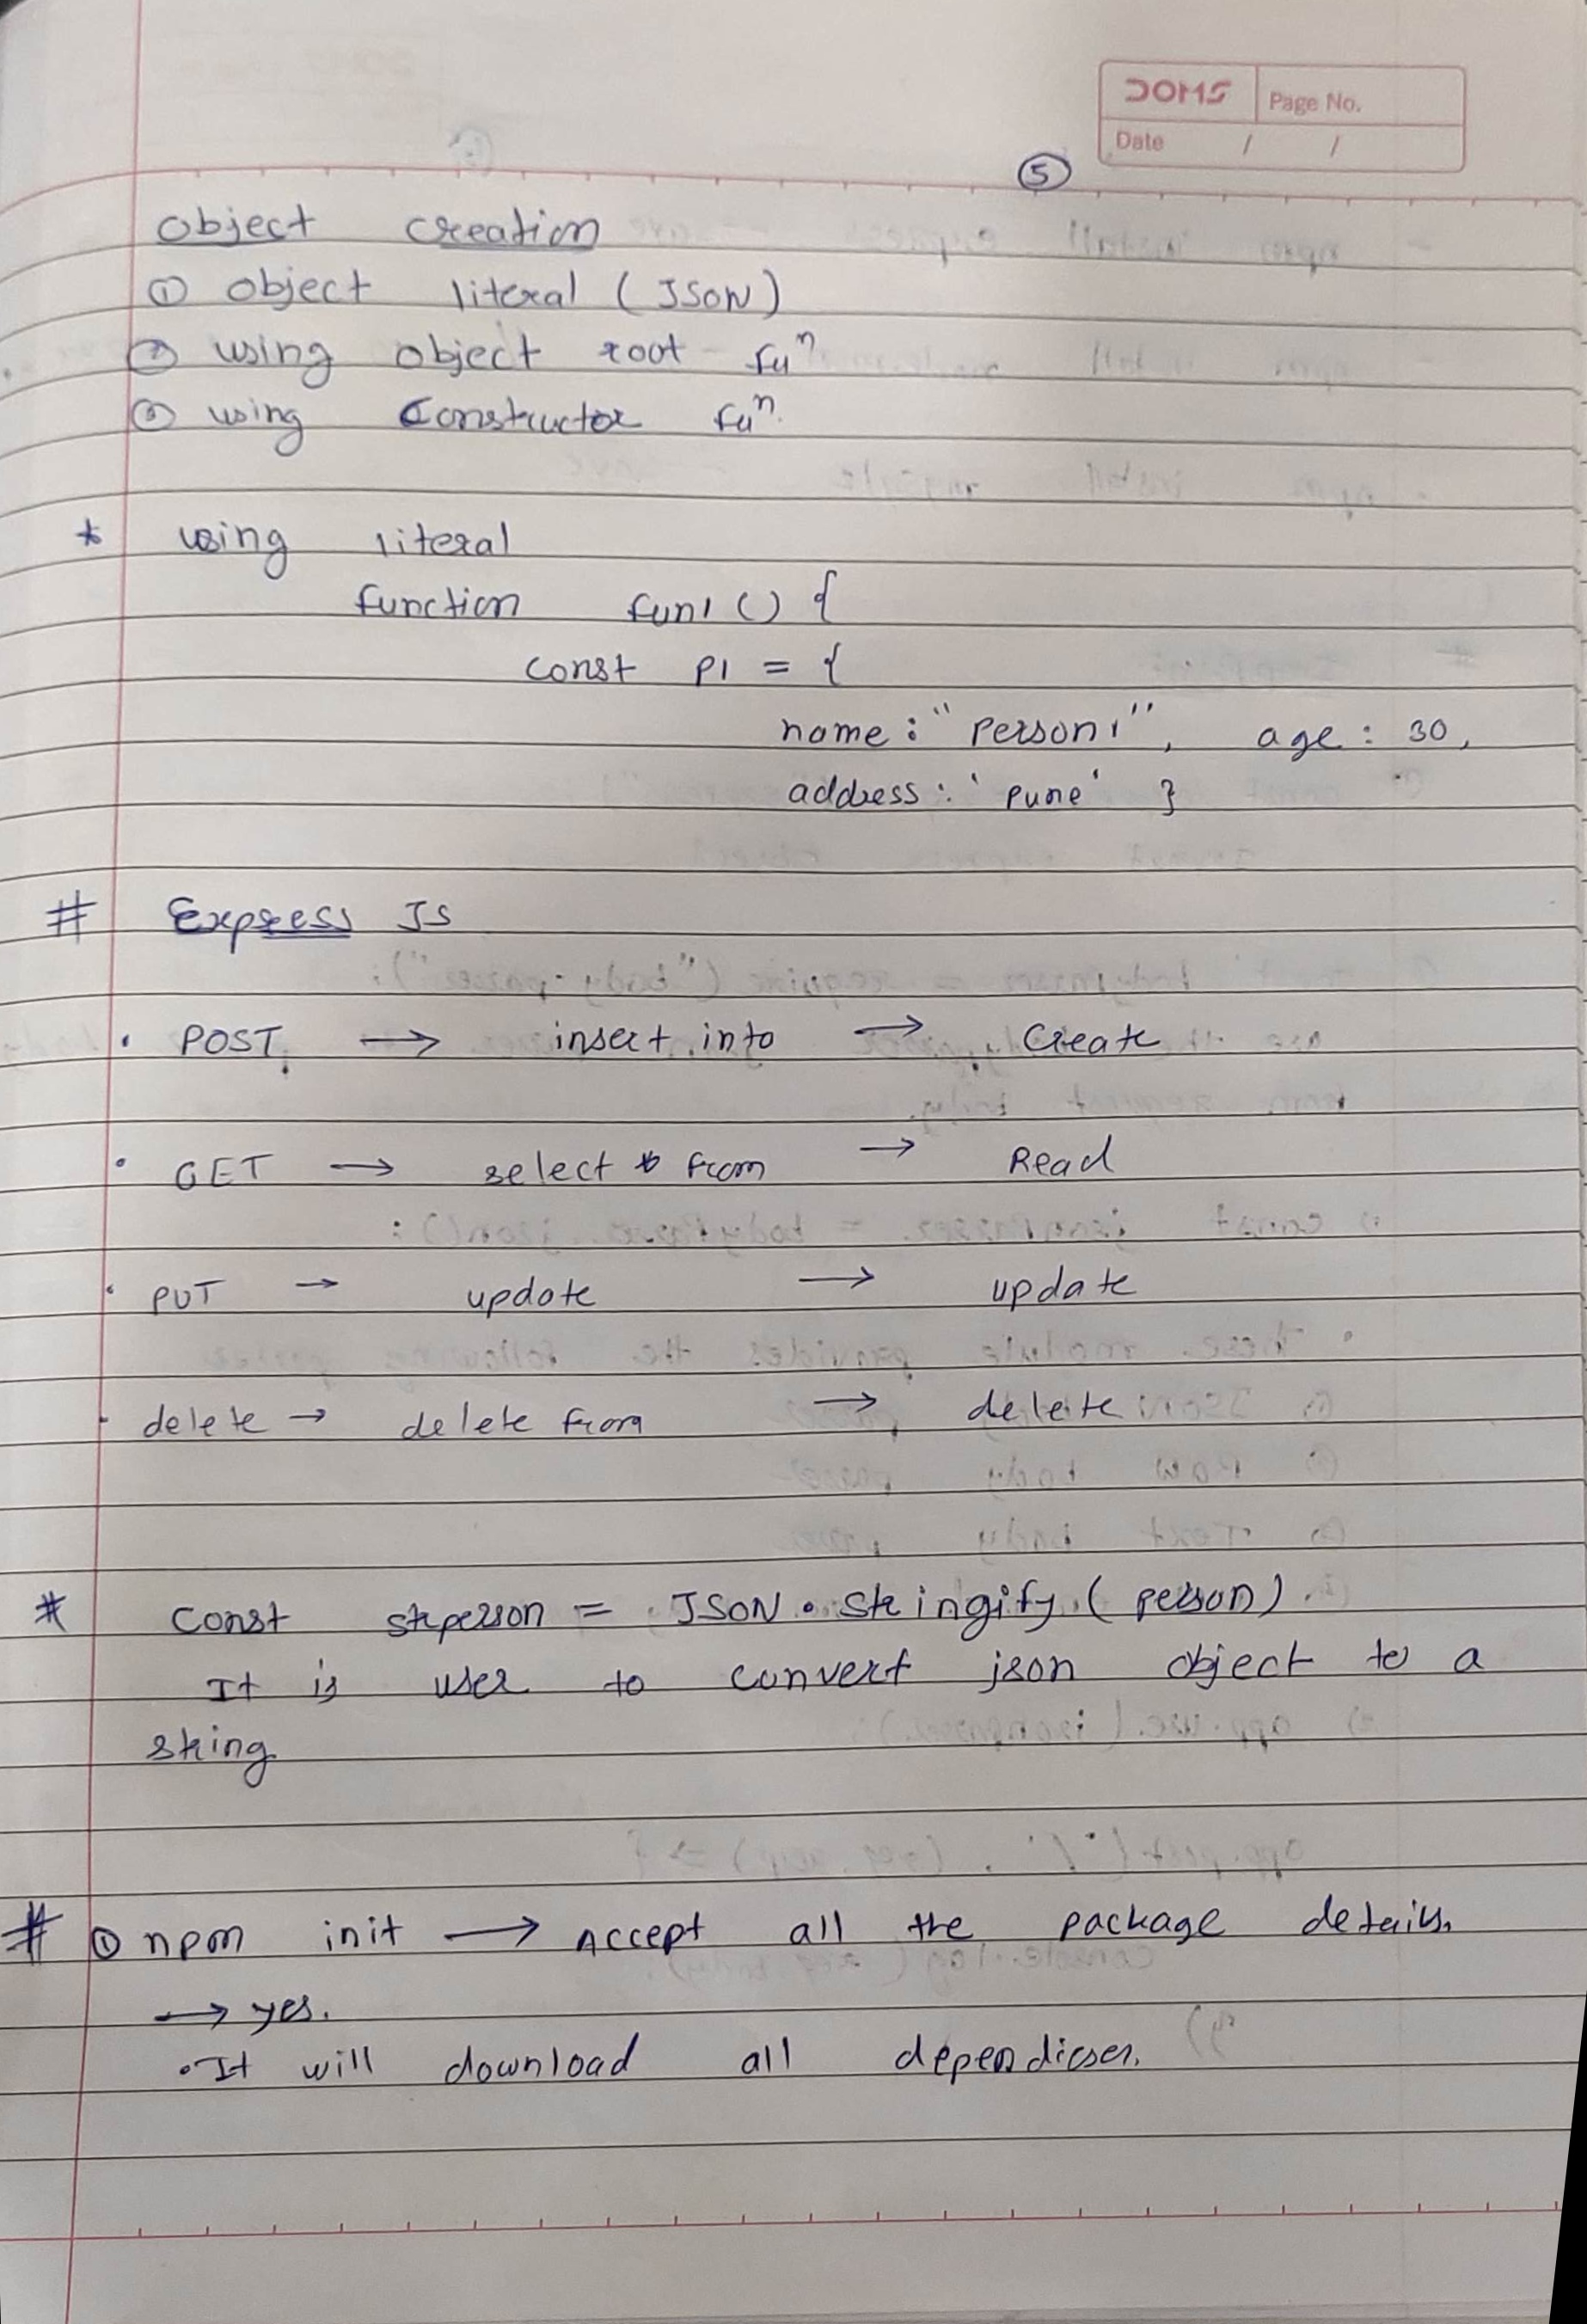 DOMS Page No.
Date / /
⑤
object creation
① object literal (JSON)
② using object root fuⁿ
③ using Constructor fuⁿ.
* using literal
function fun1 () {
const p1 = {
name : "Person1", age : 30,
address : 'pune' }
# Express JS
• POST → insert into → Create
• GET → select * from → Read
• PUT → update → update
• delete → delete from → delete
* Const strperson = JSON . stringify ( person )
It is user to convert json object to a
string
# ① npm init → Accept all the package details.
→ yes.
• It will download all